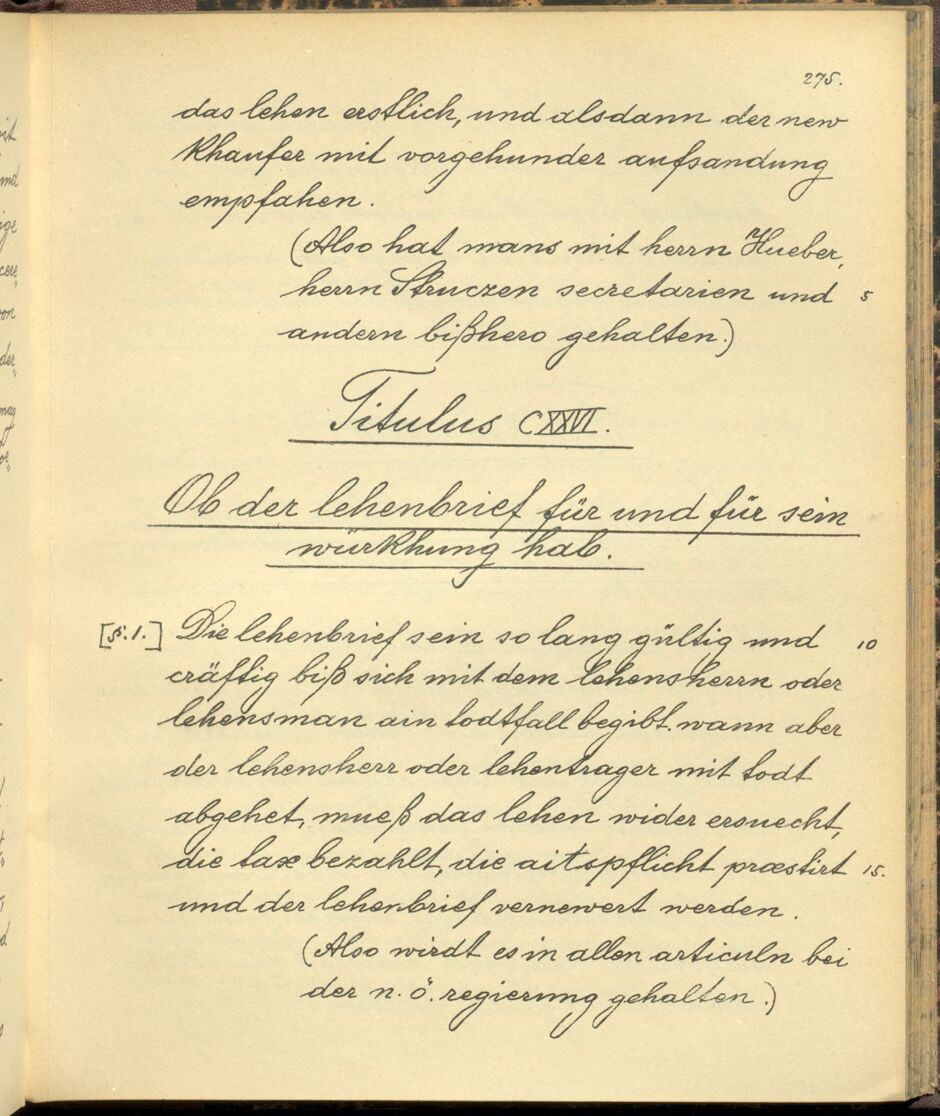 275.
das lehen erstlich, und alsdann der new
khaufer mit vorgehunder aufsandung
empfahen.
(Also hat mans mit herrn Hueber,
herrn Struczen secretarien und 5
andern bißhero gehalten.)
Titulus CXXVI.
Ob der lehenbrief für und für sein
würkhung hab.
[§.1.] Die lehenbrief sein so lang gültig und 10
cräftig biß sich mit dem lehensherrn oder
lehensman ain todtfall begibt. wann aber
der lehensherr oder lehentrager mit todt
abgehet, mueß das lehen wider ersuecht,
die tax bezahlt, die aitspflicht præstirt 15.
und der lehenbrief vernewert werden.
(Also wirdt es in allen articuln bei
der n. ö. regierung gehalten.)